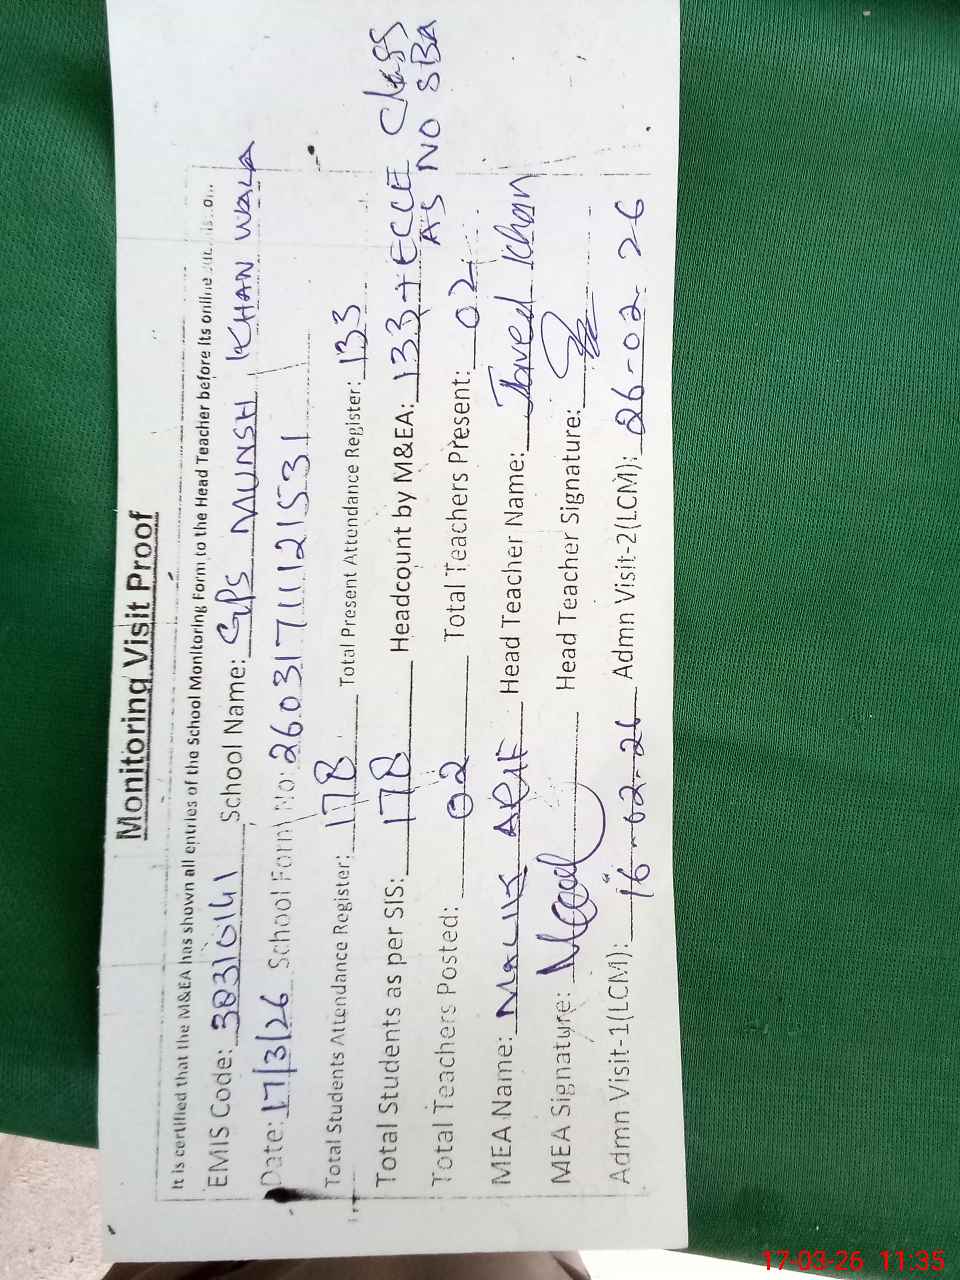 Monitoring Visit Proof
It is certified that the M&EA has shown all entries of the School Monitoring Form to the Head Teacher before its online
EMIS Code: 38310141 School Name: GPS MUNSHI KHAN WALA
Date: 17/3/26 School Form No: 260317111121531
Total Students Attendance Register: 178 Total Present Attendance Register: 133
Total Students as per SIS: 178 Headcount by M&EA: 133+ECCE Class
AS NO SBA
Total Teachers Posted: 02 Total Teachers Present: 02
MEA Name: Malik ARIF Head Teacher Name: Javed Khan
MEA Signature: Head Teacher Signature:
Admn Visit-1(LCM): 16-02-26 Admn Visit-2(LCM): 26-02-26
17-03-26 11:35